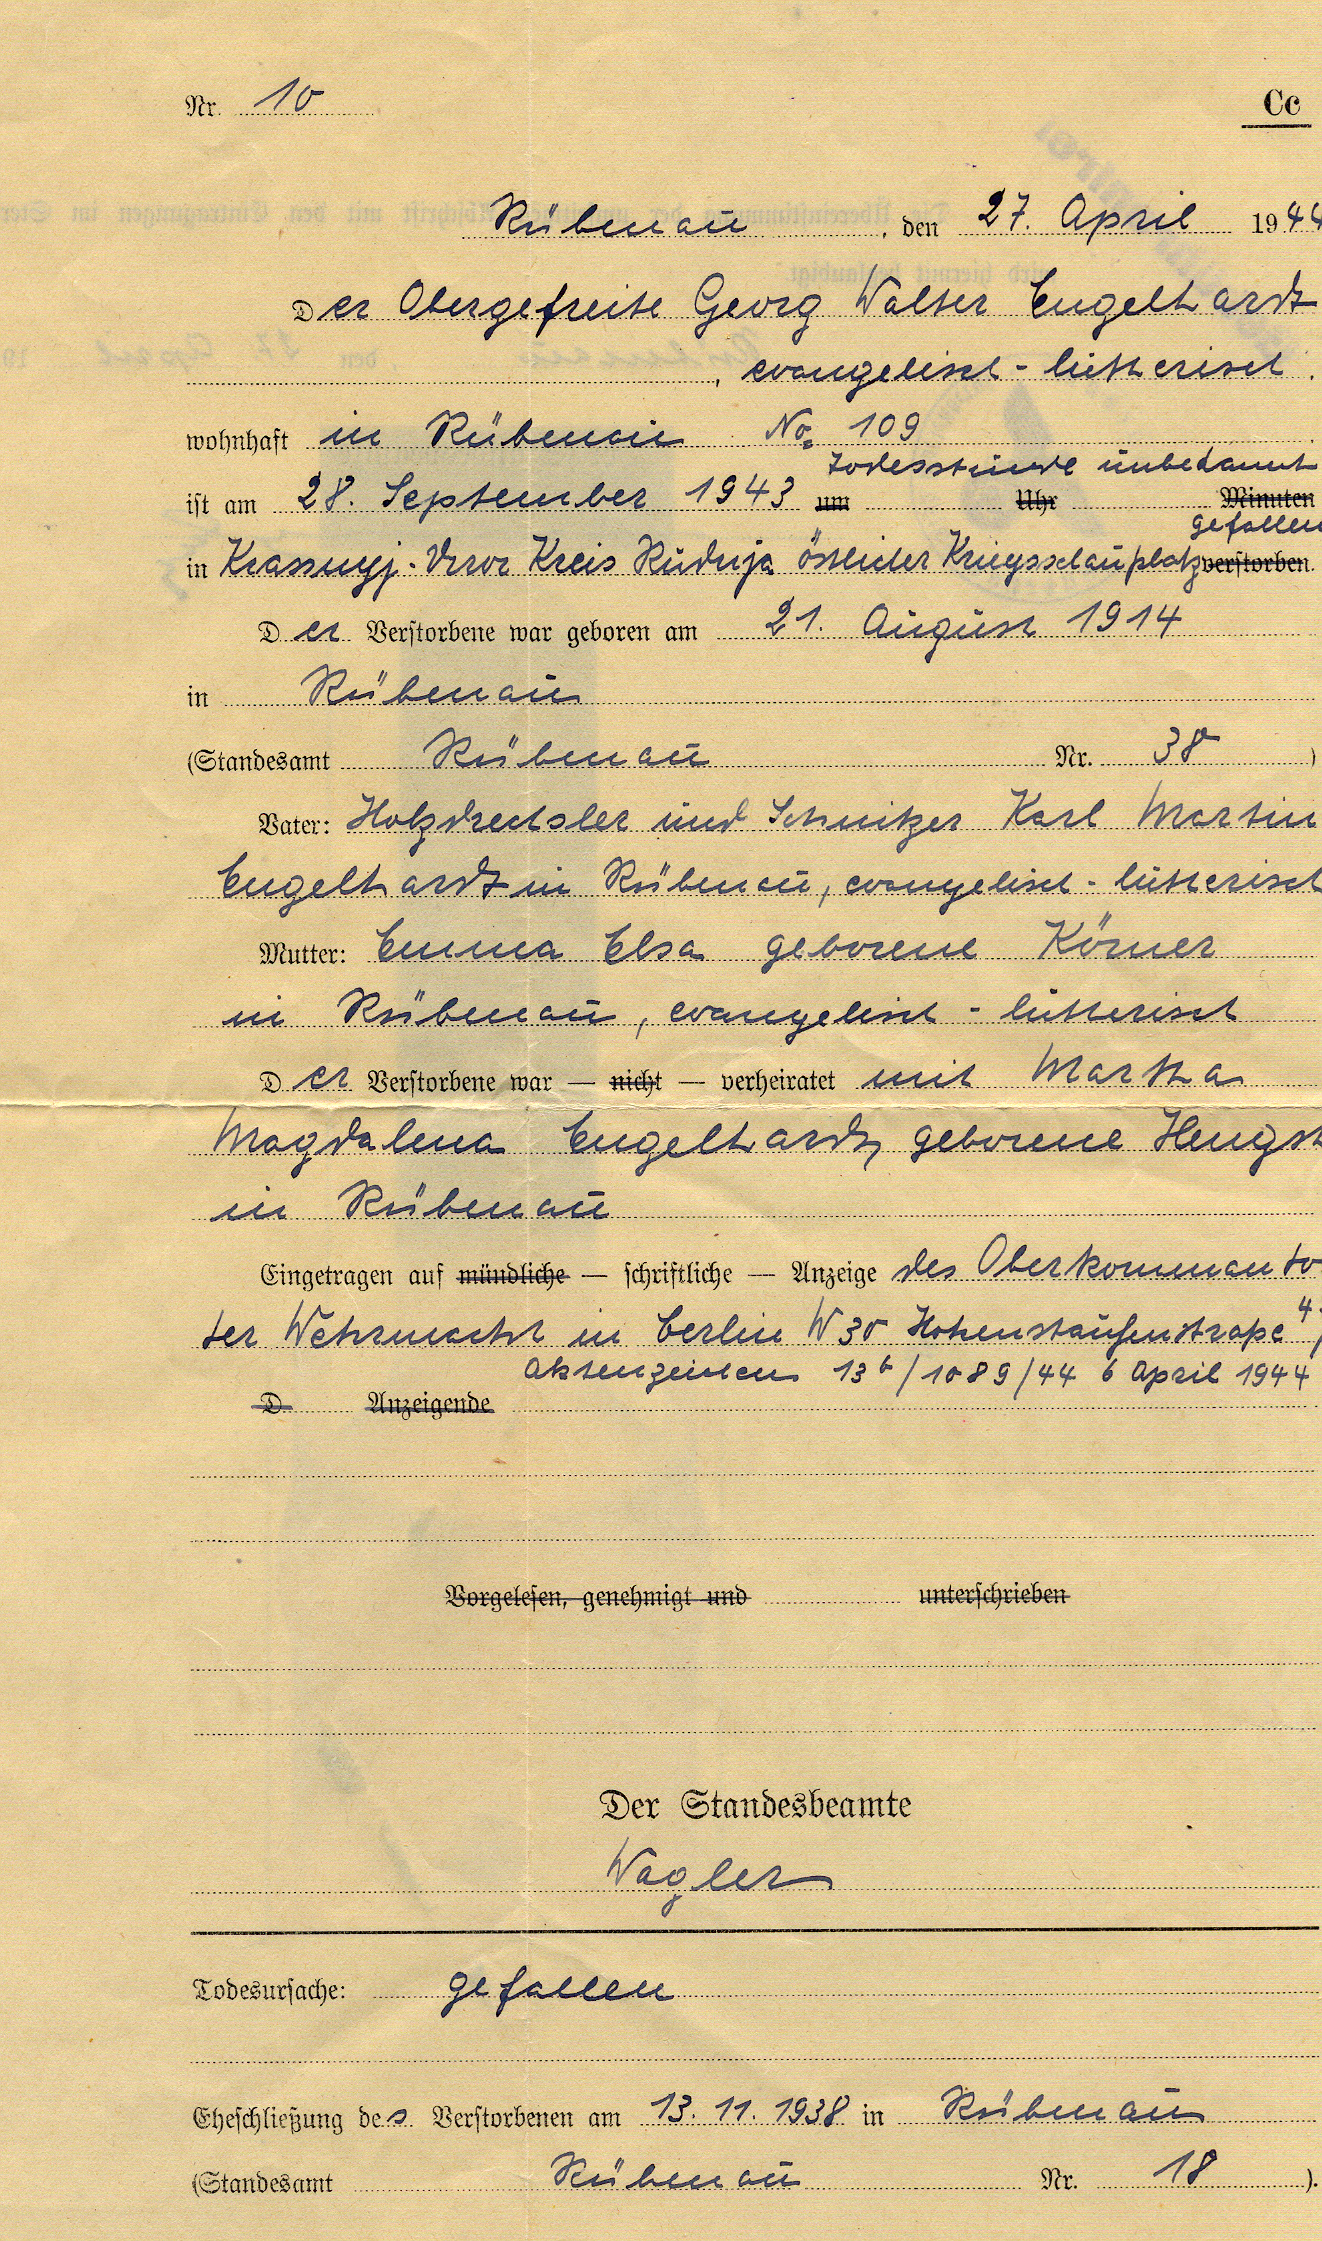 Nr. 10
Cc
Rübenau, den 27. April 1944
Der Obergefreite Georg Walter Engelhardt
, evangelisch - lutherisch.
wohnhaft in Rübenau No. 109
Todesstunde unbekannt
ist am 28. September 1943 um Uhr Minuten
gefallen
in Krassnyj- Kreis Rudnja östlicher Kriegsschauplatz verstorben.
Der Verstorbene war geboren am 21. August 1914
in Rübenau
(Standesamt Rübenau Nr. 38)
Vater: Holzdrechsler und Schnitzer Karl Martin
Engelhardt in Rübenau, evangelisch - lutherisch
Mutter: Emma Elsa geborene Körner
in Rübenau, evangelisch - lutherisch
Der Verstorbene war — nicht — verheiratet mit Martha
Magdalena Engelhardt, geborene Hengst
in Rübenau
Eingetragen auf mündliche — schriftliche — Anzeige des Oberkommando
der Wehrmacht in Berlin W 30 Hohenstaufenstraße
Aktenzeichen 13b/1089/44 6 April 1944
D Anzeigende
Vorgelesen, genehmigt und unterschrieben
Der Standesbeamte
Wagler
Todesursache: gefallen
Eheschließung des Verstorbenen am 13. 11. 1938 in Rübenau
(Standesamt Rübenau Nr. 18).